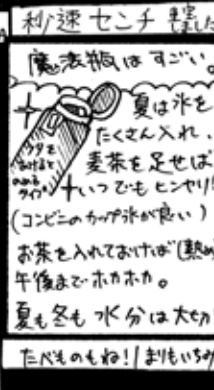 秒速センチ
魔法瓶はすごい。
夏は氷を
たくさん入れ、
麦茶を足せば
いつでもヒンヤリ!
フタを
あけると
のめる
タイプ
(コンビニのカップ氷が良い)
お茶を入れておけば(熱め
午後までホカホカ。
夏も冬も水分は大切
たべものもね!